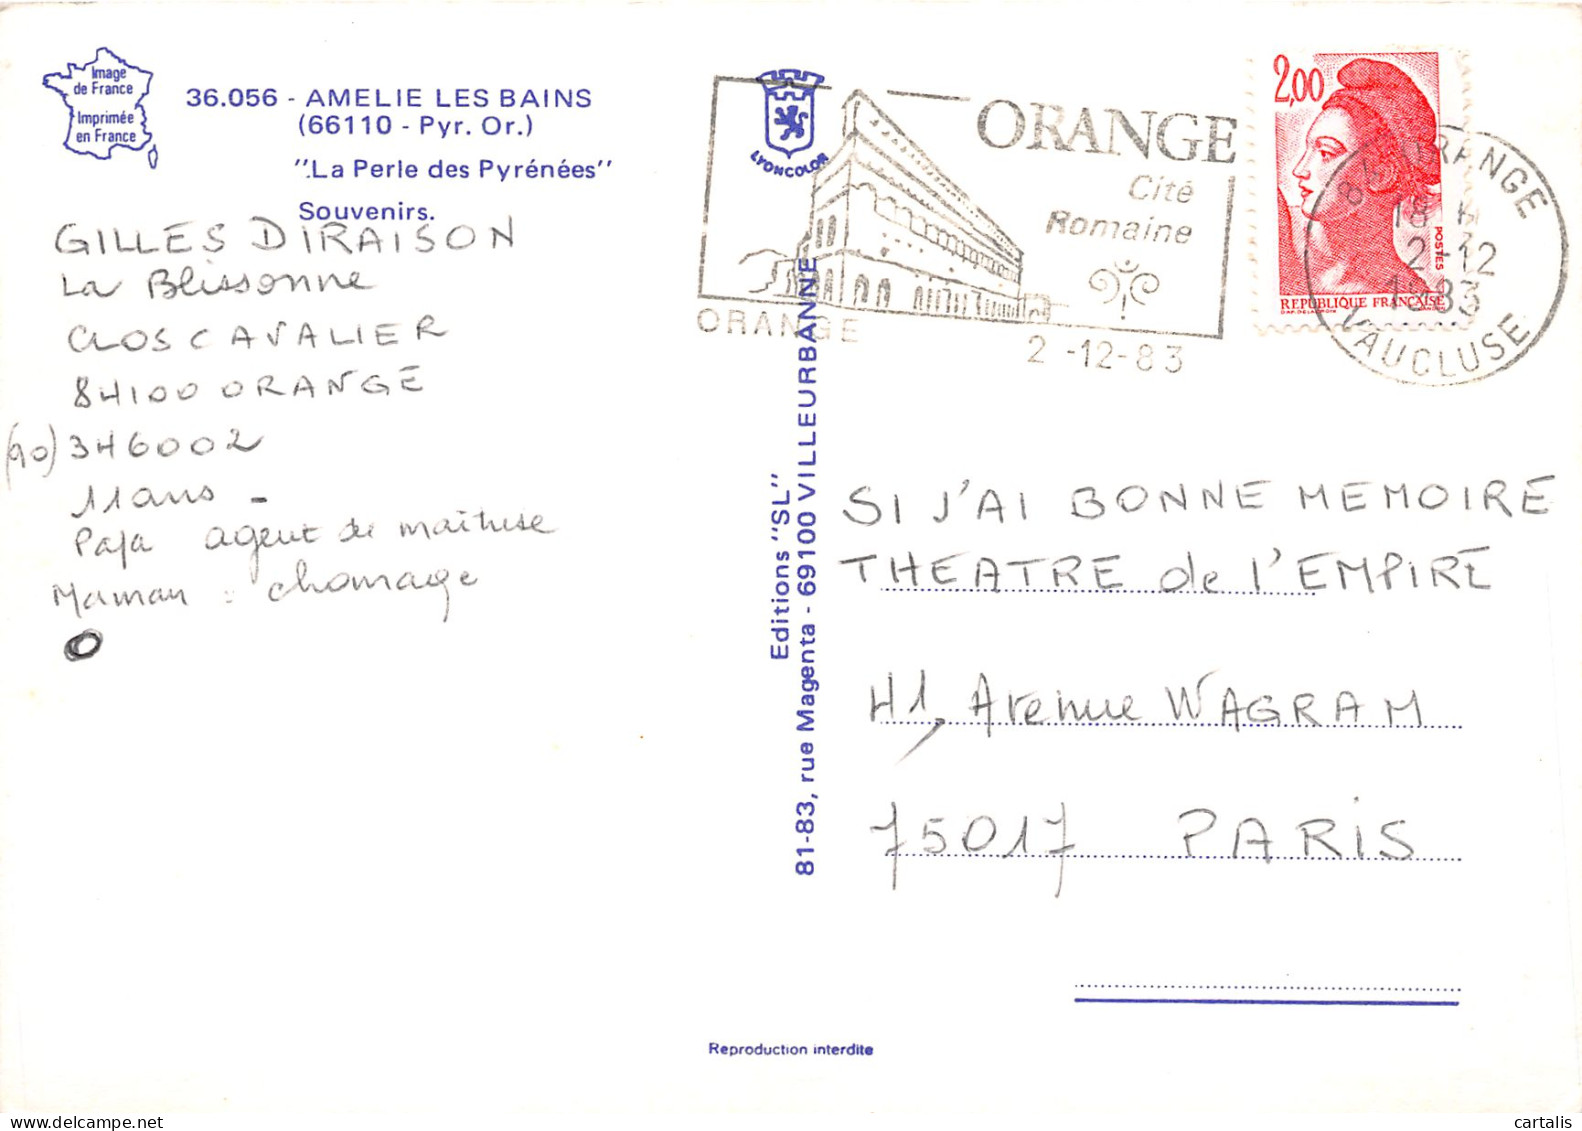 Image
de France
Imprimée
en France
36.056 - AMELIE LES BAINS
(66110 - Pyr. Or.)
"La Perle des Pyrénées"
Souvenirs.
GILLES DIRAISON
La Blissonne
CLOS CAVALIER
84100 ORANGE
(90) 346002
11 ans -
Papa agent de maîtrise
Maman : chomage
LYONCOLOR
ORANGE
Cité
Romaine
ORANGE
2 -12-83
2,00
POSTES
REPUBLIQUE FRANÇAISE
84 ORANGE
18 H
2-12
1983
VAUCLUSE
Editions "SL"
81-83, rue Magenta - 69100 VILLEURBANNE
SI J'AI BONNE MEMOIRE
THEATRE de l'EMPIRE
41, Avenue WAGRAM
75017 PARIS
Reproduction interdite
cartalis